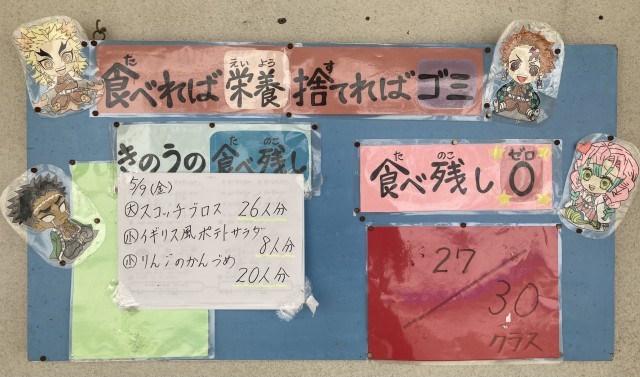 食べれば栄養捨てればゴミ
きのうの食べ残し
5/9(金)
大スコッチブロス 26人分
小イギリス風ポテトサラダ 8人分
小りんごのかんづめ 20人分
食べ残し0
27/30
クラス